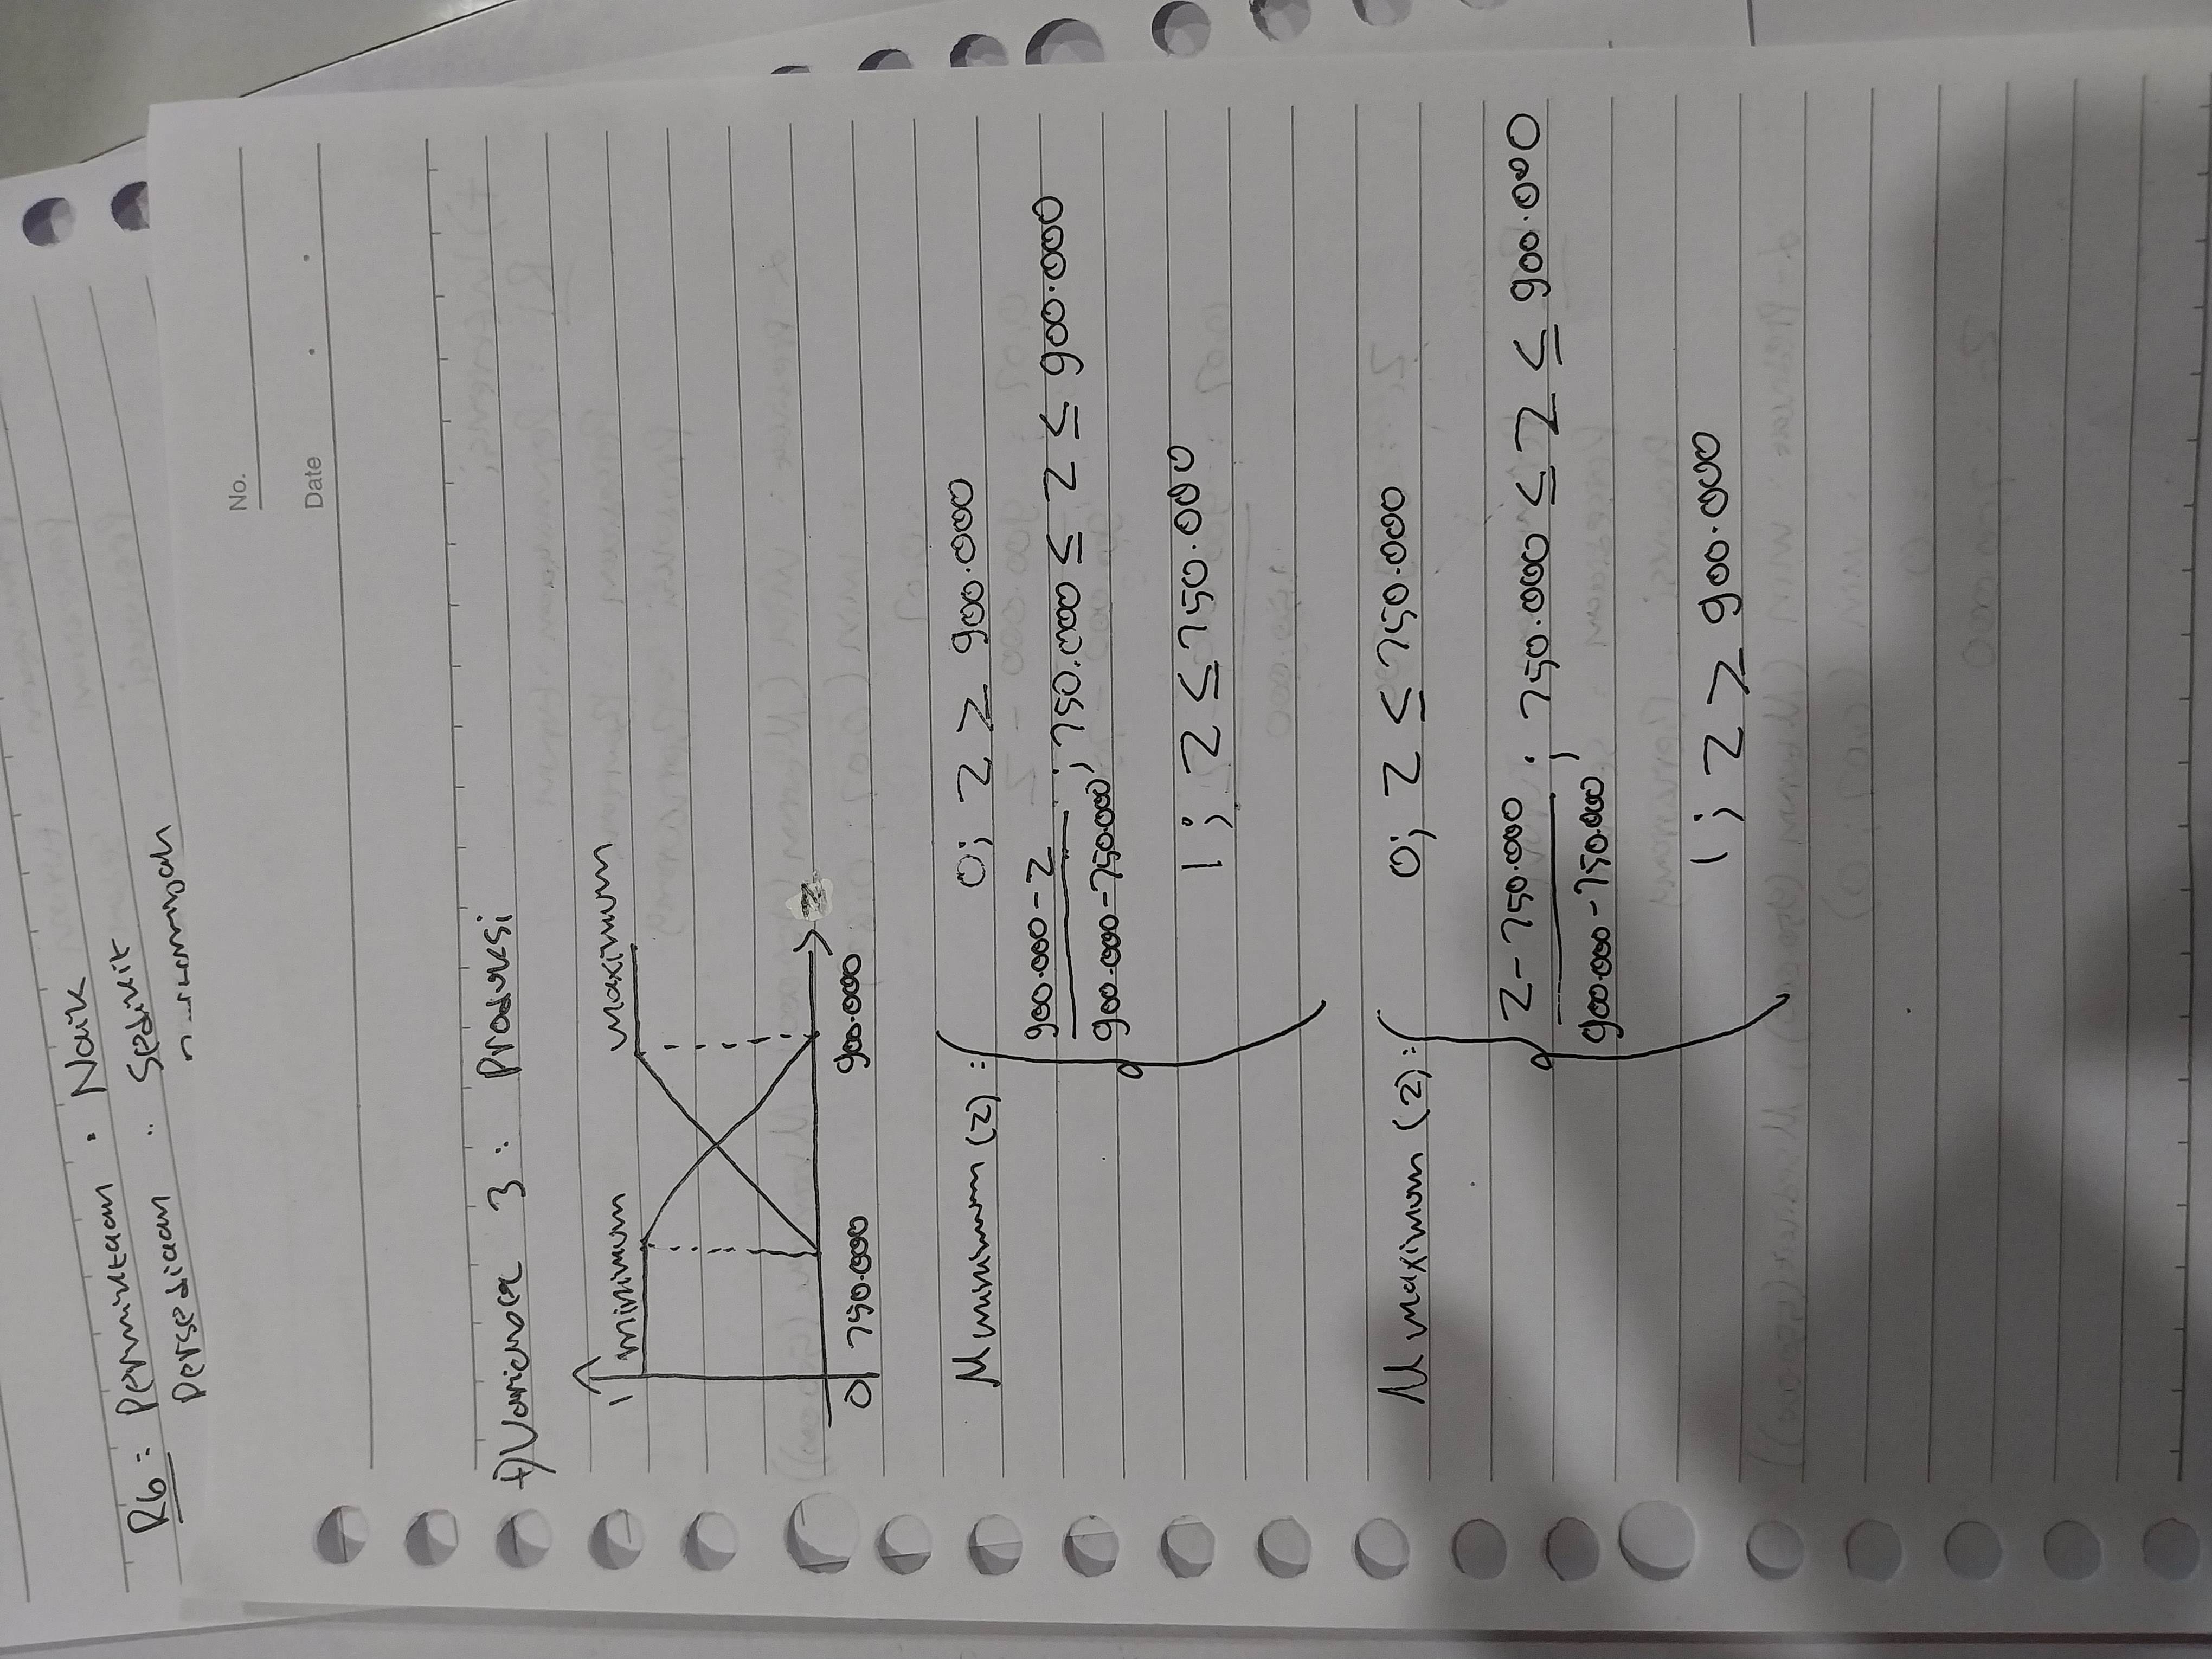 R6 : Permintaan : Naik
Persediaan : Sedikit
No.
Date
+) Variabel 3 : Produksi
1 minimum maximum
0 750.000 900.000 z
M minimum (z) : 0; z ≥ 900.000
900.000 - z
900.000 - 750.000 ; 750.000 ≤ z ≤ 900.000
1 ; z ≤ 750.000
M maximum (z) : 0; z ≤ 750.000
z - 750.000
900.000 - 750.000 ; 750.000 ≤ z ≤ 900.000
1 ; z ≥ 900.000